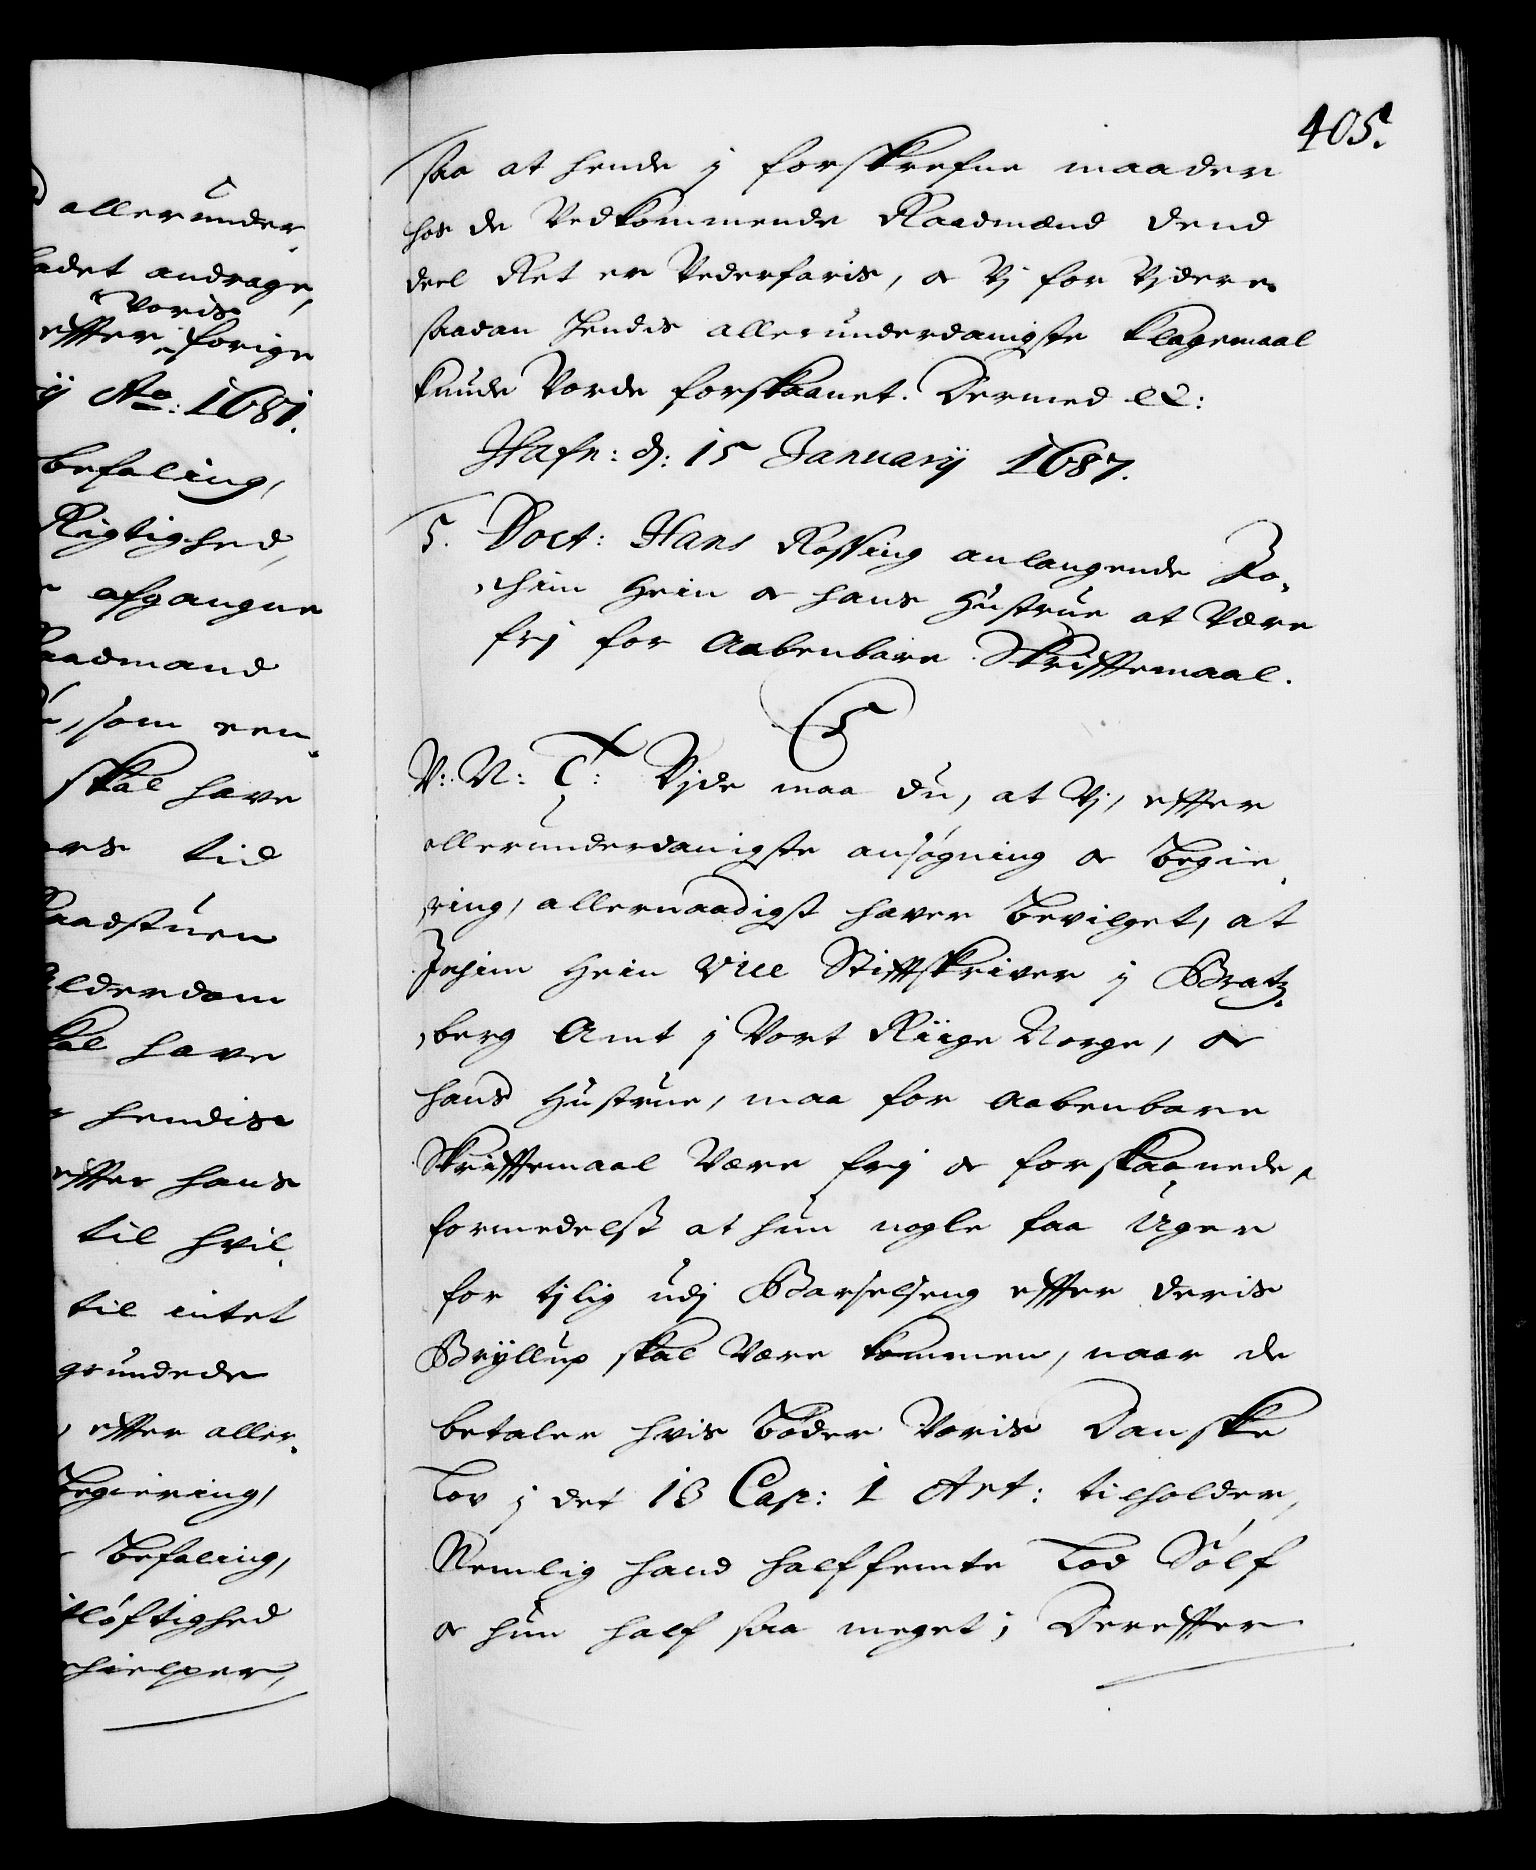 405.
saa at hende j forskrefne maader
hos de Vedkommende Raadmænd dend
deel Ret er Vederfaris, og Vj for Vjdere
saadan hendis allerunderdanigste klagemaal
kunde Vorde forskaanet. Dermed etc:
Hafn: d: 15 Januarij 1687.
5. Doct: Hans Rosing anlangende Jo-
chim Hein og hans Hustrue at Være
frj for Aabenbare Skrifftemaal.
C5
V: N: T: Vjde maa du, at Vj, effter
allerunderdanigste ansøgning og Begie-
ring, allernaadigst haver Bevilget, at
Jochim Hein Vice Stifftskriver j Bratz-
berg Amt j Vort Rijge Norge, og
hans Hustrue, maa for Aabenbare
Skrifftemaal Være frj og forskaanede,
formedelst at hun nogle faa Uger
for tjlig udj Barselseng effter deris
Bryllup skal Være kommen, naar de
betaler hvis Bøder Voris Danske
Lov j det 13 Cap: 1 Art: tilholder,
Nemlig hand halffemte Lod Sølf
og hun half saa meget; Dereffter
allerunder-
ladet andrage,
Voris
effter forige
ij Ao: 1681.
befaling,
Rigtighed,
afgangne
Raadmand
, som een-
skal have
tid
Raadstuen
Alderdom
skal have
hendis
effter hans
til hvil-
til intet
grundede
, effter aller-
Begiering,
Befaling,
tløftighed
hielper,